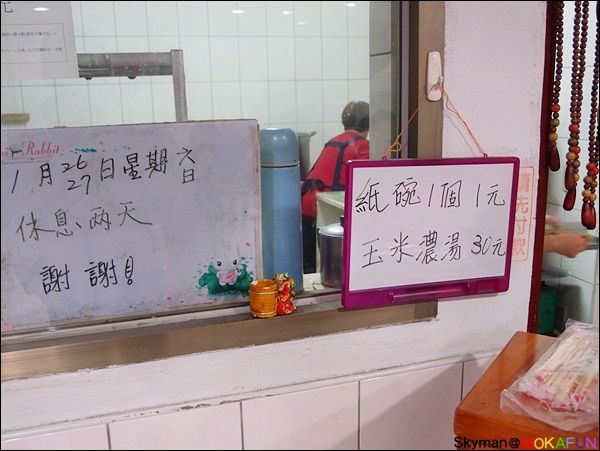 Rabbit
1月26 27日星期六日
休息兩天
謝謝!
紙碗1個1元
玉米濃湯30元
請先付款
Skyman@MOKAFUN